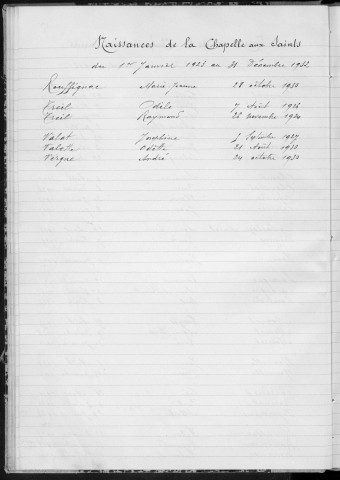 Naissances de la Chapelle aux Saints
du 1er Janvier 1923 au 31 Décembre 1932
Rouffignac Marie Jeanne 28 octobre 1930
Treil Odile 7 Août 1926
Treil Raymond 26 novembre 1924
Valat Joséphine 5 Septembre 1927
Valette Odette 21 Août 1930
Vergne André 24 octobre 1930